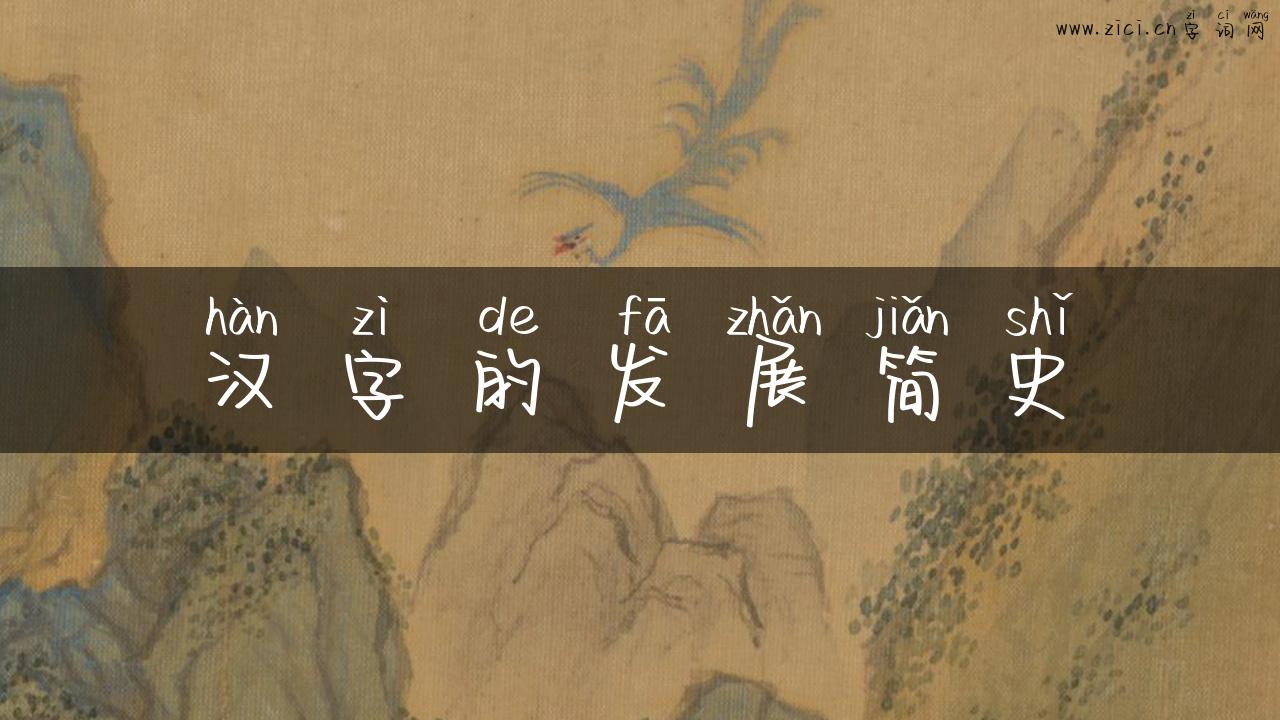 zì cí wǎng
www.zici.cn字词网
hàn zì de fā zhǎn jiǎn shǐ
汉字的发展简史